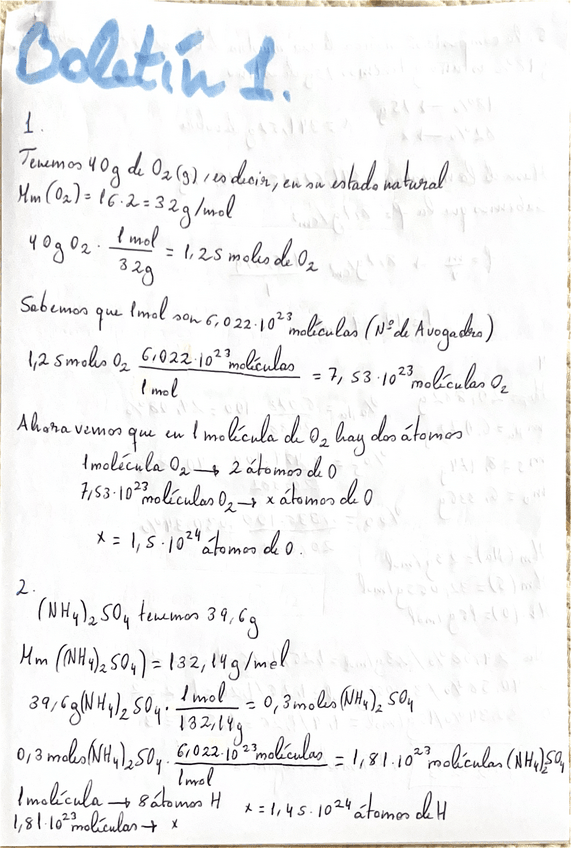 Boletín 1.
1.
Tenemos 40g de O₂(g), es decir, en su estado natural
Mm(O₂) = 16·2 = 32g/mol
40g O₂ · 1mol/32g = 1,25 moles de O₂
Sabemos que 1mol son 6,022·10²³ moléculas (Nº de Avogadro)
1,25 moles O₂ 6,022·10²³ moléculas/1mol = 7,53·10²³ moléculas O₂
Ahora vemos que en 1 molécula de O₂ hay dos átomos
1molécula O₂ → 2 átomos de O
7,53·10²³ moléculas O₂ → x átomos de O
x = 1,5·10²⁴ átomos de O.
2.
(NH₄)₂SO₄ tenemos 39,6g
Mm((NH₄)₂SO₄) = 132,14g/mol
39,6g(NH₄)₂SO₄ · 1mol/132,14g = 0,3 moles (NH₄)₂SO₄
0,3 moles(NH₄)₂SO₄ · 6,022·10²³ moléculas/1mol = 1,81·10²³ moléculas (NH₄)₂SO₄
1molécula → 8 átomos H x = 1,45·10²⁴ átomos de H
1,81·10²³ moléculas → x